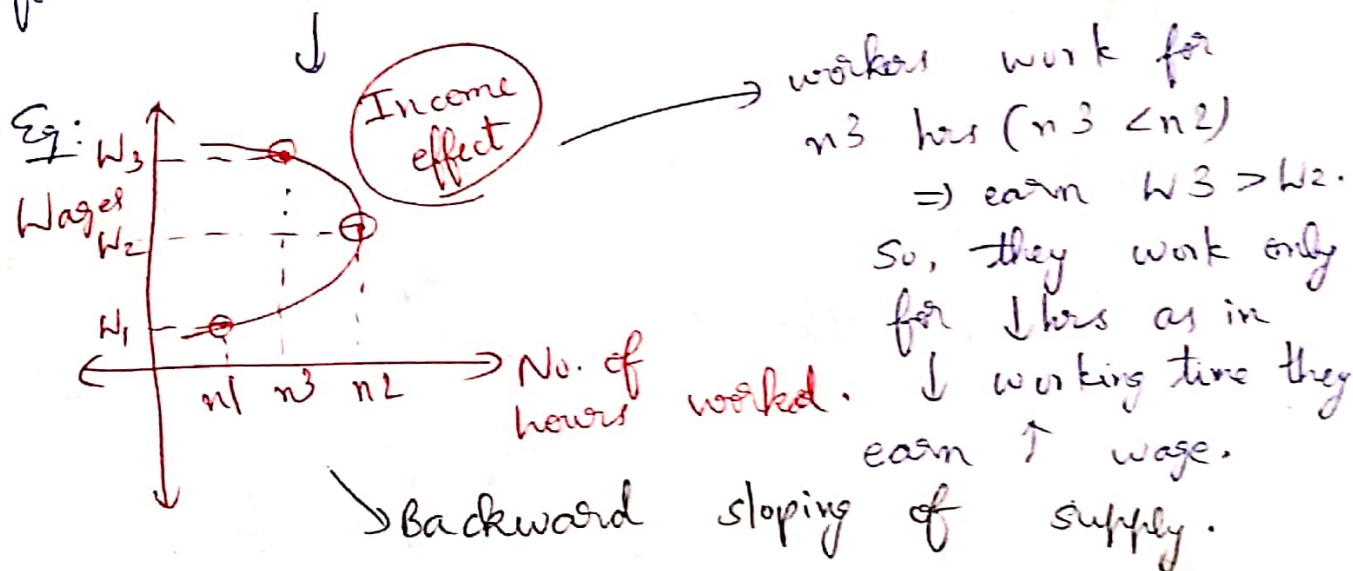 ↓
Eg:
Income
effect
W3
Wages
W2
W1
n1 n3 n2
No. of
hours worked.
→ workers work for
n3 hrs (n3 < n2)
⇒ earn W3 > W2.
So, they work only
for ↓ hrs as in
↓ working time they
earn ↑ wage.
Backward sloping of supply.